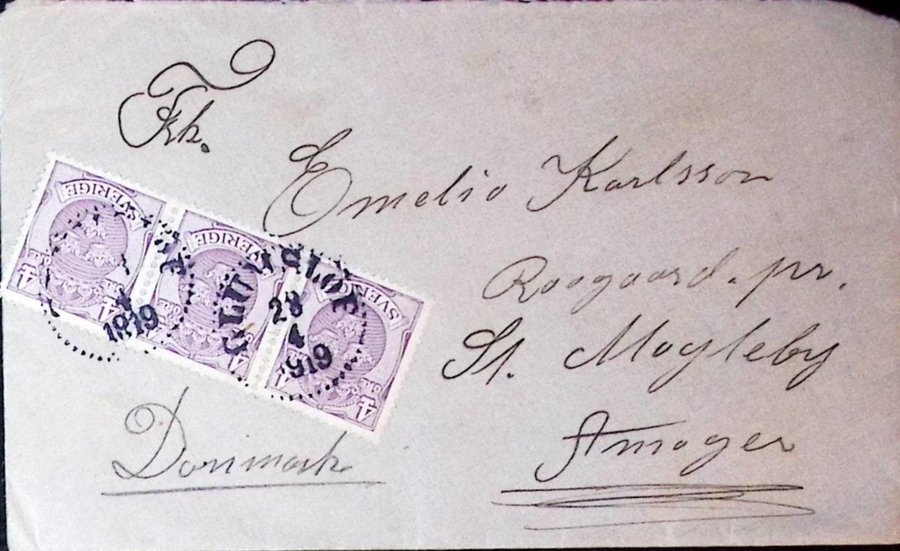 Frk.
Emelie Karlsson
Raagaard. pr.
St. Magleby
Amager
Danmark
SVERIGE
SVERIGE
SVERIGE
4
4
4
4
GLUMSLÖF
28
4
1919
1919